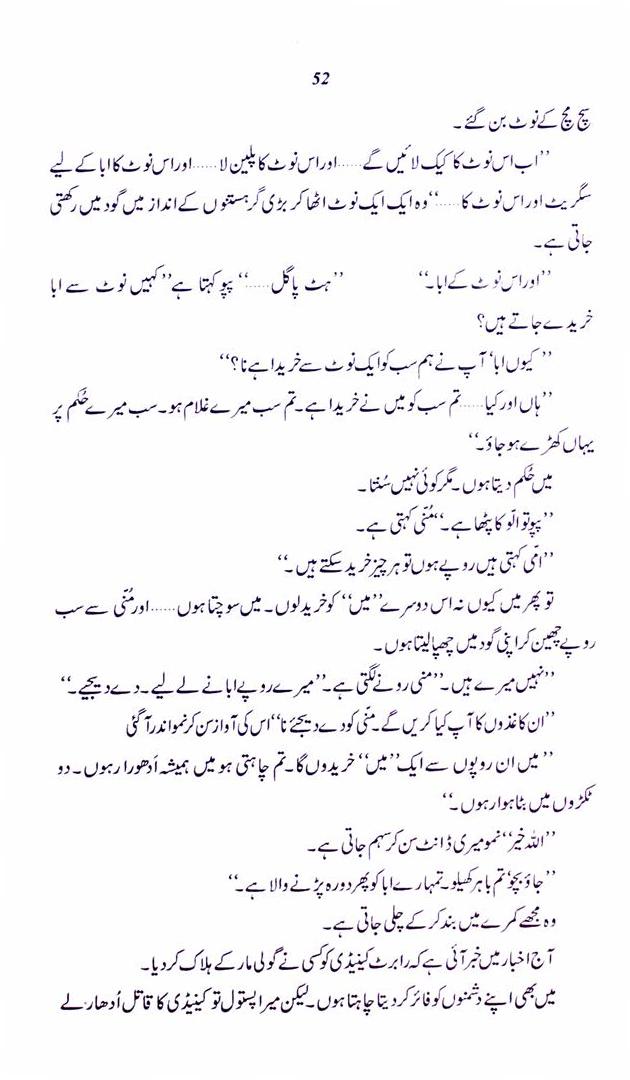 52
سچ مچ کے نوٹ بن گئے۔
’’اب اس نوٹ کا کیک لائیں گے......اور اس نوٹ کا پلین لا......اور اس نوٹ کا ابا کے لیے
سگریٹ اور اس نوٹ کا.....‘‘وہ ایک ایک نوٹ اٹھا کر بڑی گرہستنوں کے انداز میں گود میں رکھتی
جاتی ہے۔
’’اور اس نوٹ کے ابا۔‘‘ ’’ہٹ پاگل.....‘‘ پپو کہتا ہے’’کہیں نوٹ سے ابا
خریدے جاتے ہیں؟
’’کیوں ابا‘ آپ نے ہم سب کو ایک نوٹ سے خریدا ہے نا؟‘‘
’’ہاں اور کیا......تم سب کو میں نے خریدا ہے۔تم سب میرے غلام ہو۔سب میرے حُکم پر
یہاں کھڑے ہو جاؤ۔‘‘
میں حُکم دیتا ہوں۔مگر کوئی نہیں سُنتا۔
’’پپو تو الّو کا پٹھا ہے۔‘‘مُنّی کہتی ہے۔
’’امّی کہتی ہیں روپے ہوں تو ہر چیز خرید سکتے ہیں۔‘‘
تو پھر میں کیوں نہ اس دوسرے’’میں‘‘ کو خرید لوں۔میں سوچتا ہوں......اور مُنّی سے سب
روپے چھین کر اپنی گود میں چھپا لیتا ہوں۔
’’نہیں میرے ہیں۔‘‘منی رونے لگتی ہے۔’’میرے روپے ابا نے لے لیے۔دے دیجیے۔‘‘
’’ان کاغذوں کا آپ کیا کریں گے۔منّی کو دے دیجئے نا‘‘اس کی آواز سن کر نمو اندر آ گئی
’’میں ان روپوں سے ایک’’میں‘‘ خریدوں گا۔تم چاہتی ہو میں ہمیشہ اُدھورا رہوں۔دو
ٹکڑوں میں بٹا ہوا رہوں۔‘‘
’’اللہ خیر‘‘نمو میری ڈانٹ سن کر سہم جاتی ہے۔
’’جاؤ بچو‘تم باہر کھیلو۔تمہارے ابا کو پھر دورہ پڑنے والا ہے۔‘‘
وہ مجھے کمرے میں بند کر کے چلی جاتی ہے۔
آج اخبار میں خبر آئی ہے کہ رابرٹ کینیڈی کو کسی نے گولی مار کے ہلاک کر دیا۔
میں بھی اپنے دشمنوں کو فائر کر دینا چاہتا ہوں۔لیکن میرا پستول تو کینیڈی کا قاتل اُدھار لے